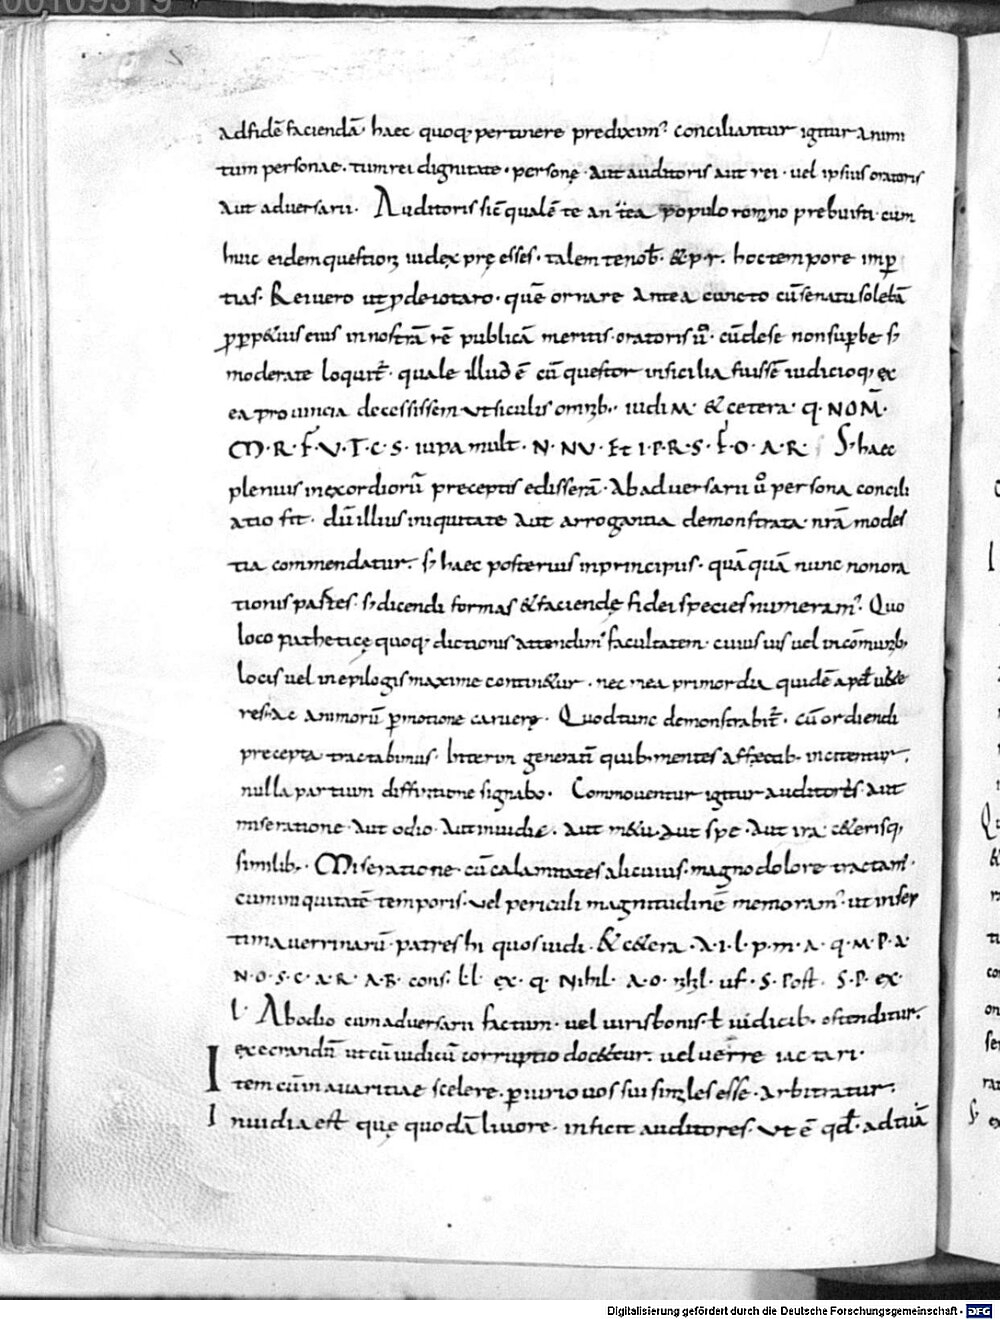 00109319
adfidē faciendā· haec quoq; pertinere prediximꝰ conciliantur igitur animi
tum personae· tum rei dignitate· personę· aut auditoris aut rei· uel ipsius oratoris
aut aduersarii· Auditoris sic̄ qualē te antea populo romano prebuisti cum
huic eidem questioni iudex pręesses· talem te nob̄· & p·r· hoc tempore imp̄
tias· Rei uero ut ꝓ deiotaro· quē ornare antea cuncto cū senatu solebā
ꝓ perpetuis eius in nostrā rē publicā meritis· oratoris ū· cū de se non supbe s;
moderate loquit̄· quale illud ē cū questor in sicilia fuissē iudicioq; ex
ea prouincia decessissem ut siculis omnib· iudiM· & cetera· q· NOM̄·
M·R·F·V·T·C·S· iupa mult· N· NU· Et I·P·R·S· F·O·A·R· S; haec
plenius in exordiorū preceptis edisserā· Ab aduersarii ū persona concili
atio fit· dū illius iniquitate aut arrogantia demonstrata nr̄a modes
tia commendatur· s; haec posterius in principiis· quāquā nunc non ora
tionis partes· s; dicendi formas & faciendę fidei species numeramꝰ Quo
loco pathetice quoq; dictionis attendimꝰ facultatem· cuius uis uel in cōmunib;
locis uel in epilogis maxime continetur· nec nea primordia quidē apd̄
res ac animorū pmotione caruere· Quod tunc demonstrabit̄· cū ordiendi
precepta tractabimus· Interim generatī quib· mentes affectib· incitentur·
nulla partium diffinitione signabo· Commouentur igitur auditores aut
miseratione· aut odio· aut inuidia· aut metu· aut spe· aut ira· ceterisq;
similib;· Miseratione· cū calamitates alicuius· magno dolore tractamꝰ·
cum iniquitatē temporis· uel periculi magnitudinē memoramꝰ ut in sep
tima uerrinarū· patres hi quos uidi· & cetera· A·I·L·p·m·A·q·M·P·A·
N·O·S·C·A·R·A·B· cons· LL· ex· q· Nihil· A·O· uf· S· Post· S·P· ex·
L· Ab odio cum aduersarii factum· uel uiris bonis· ł iudicib· ostenditur·
execrandū ut cū iudiciū corruptio docetur· uel uerre iactari·
Item cū in auaritiae scelere piurio uos sui similes esse· arbitratur·
Inuidia est que quodā liuore· inficit auditores· ut ē qd̄· ad tuā
Digitalisierung gefördert durch die Deutsche Forschungsgemeinschaft - DFG